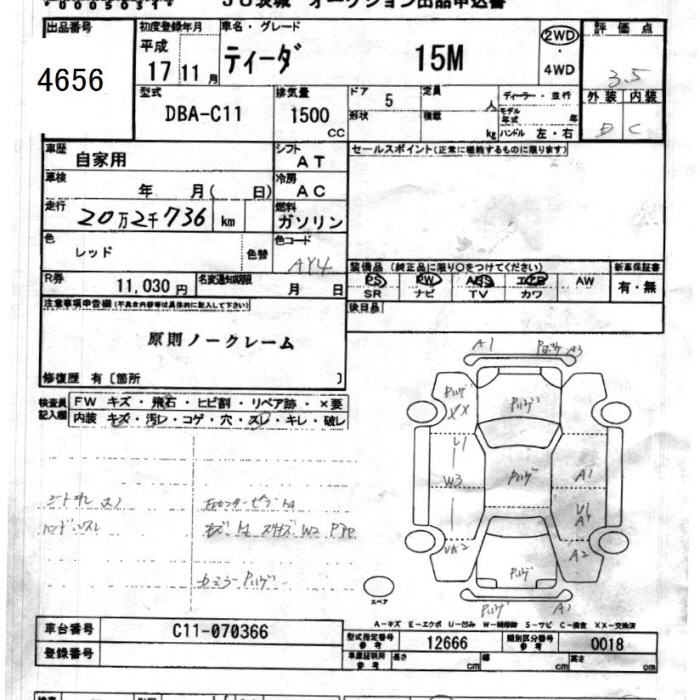 JU茨城 オークション出品申込書
出品番号
4656
初度登録年月
平成
17 11 月
車名・グレード
ティーダ 15M
2WD
・
4WD
評価点
3.5
型式
DBA-C11
排気量
1500
CC
ドア
5
形状
定員
人
積載
kg
ディーラー・並行
モデル年式 年
ハンドル 左・右
外装 内装
D C
車歴
自家用
シフト
AT
セールスポイント(正常に機能するものに限ります)
車検
年 月( 日)
冷房
AC
走行
20万2千736 km
燃料
ガソリン
色
レッド
色替
色コード
AY4
装備品 (純正品に限り○をつけてください)
新車保証書
PS PW ABS エアB AW
SR ナビ TV カワ
有・無
R券
11,030 円
名変通知期限
月 日
後日品
注意事項申告欄(不具合内容等は具体的に記入して下さい)
原則ノークレーム
修復歴 有〔箇所 〕
検査員記入欄
FW キズ・飛石・ヒビ割・リペア跡・×要
内装 キズ・汚レ・コゲ・穴・スレ・キレ・破レ
A1
A3
W3
A1
A2
A1
スペア
A－キズ E－エクボ U－凹み W－補修跡 S－サビ C－腐食 XX－交換済
車台番号
C11-070366
登録番号
型式指定番号
参考
12666
類別区分番号
参考
0018
車庫証明用
参考
長さ cm
幅 cm
高さ cm